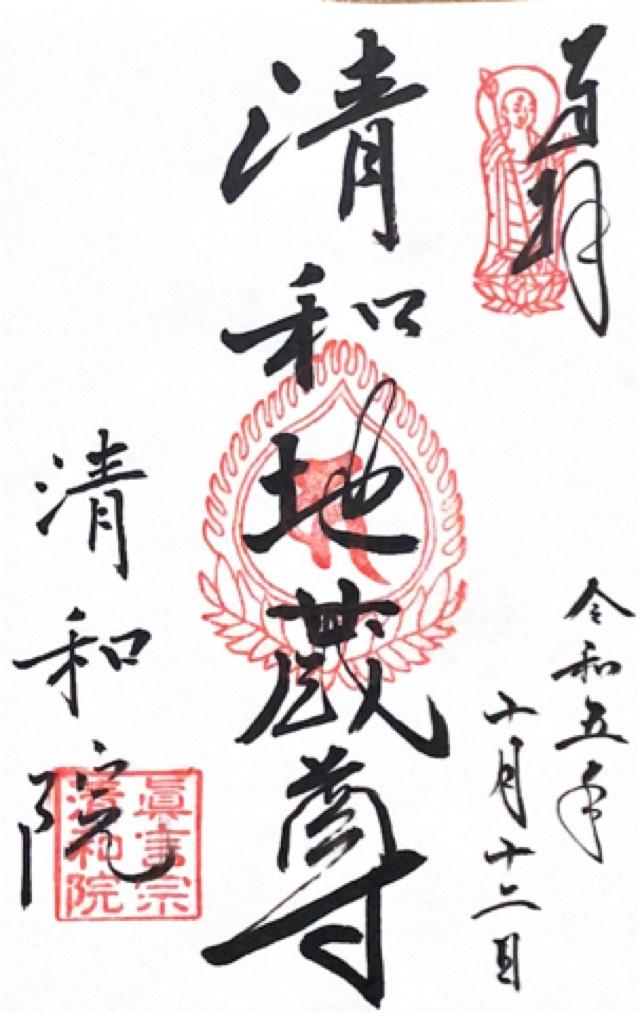 奉拝
令和五年
十月十二日
清和地蔵尊
清和院
眞言宗
清和院